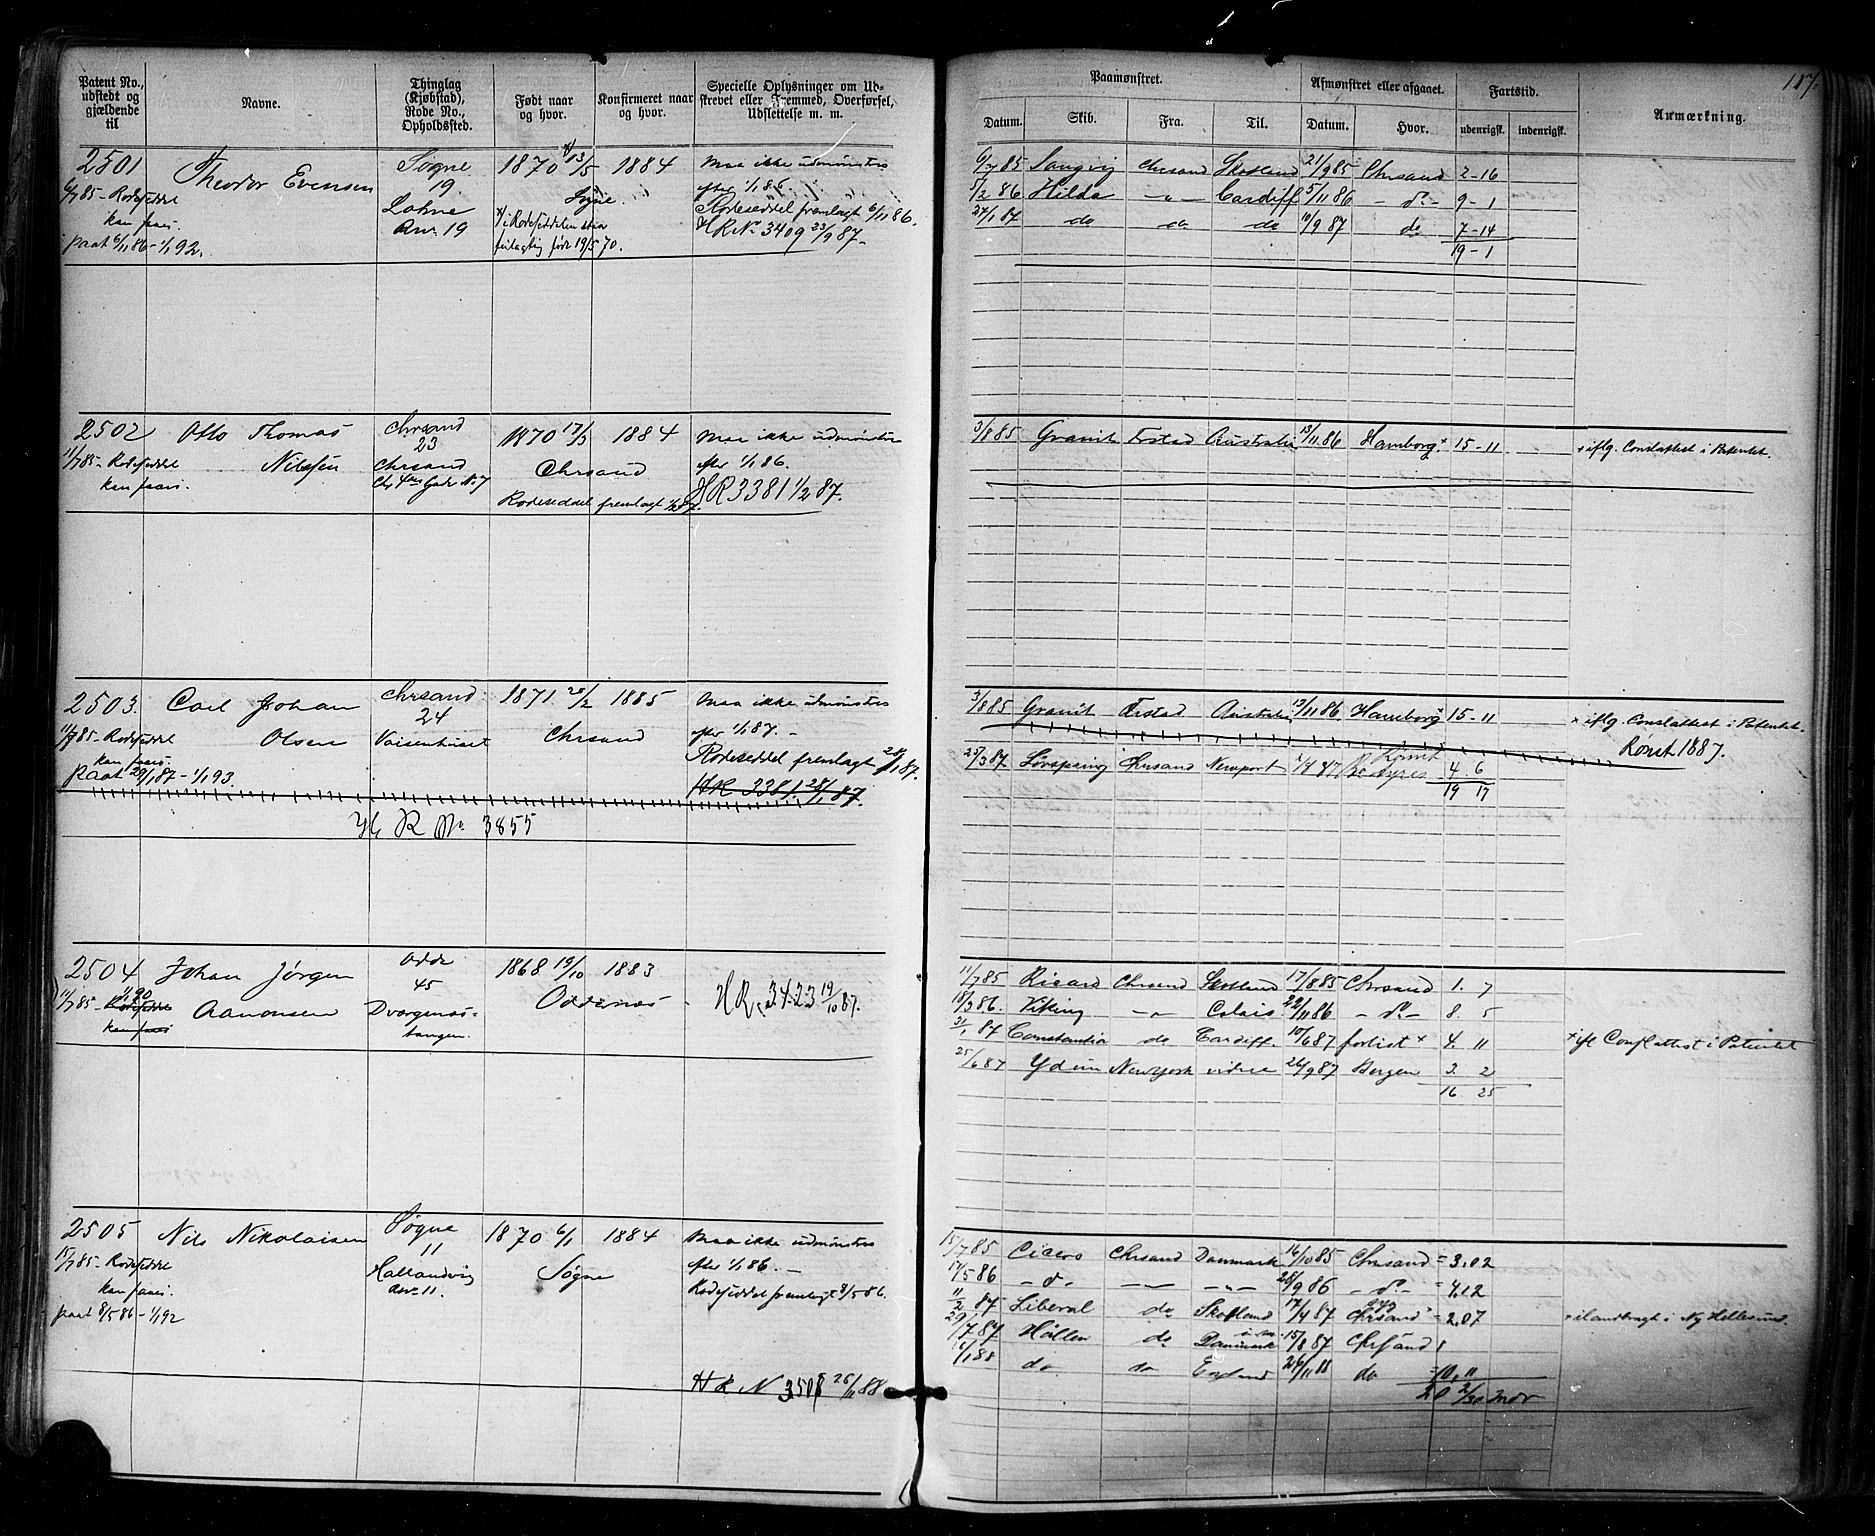 117.
Patent No., udstedt og gjældende til
Navne.
Thinglag (Kjøbstad), Rode No., Opholdssted.
Født naar og hvor.
Konfirmeret naar og hvor.
Specielle Oplysninger om Udskrevet eller Fremmed, Overførsel, Udslettelse m. m.
Paamønstret.
Afmønstret eller afgaaet.
Fartstid.
Anmærkning.
Datum. Skib. Fra. Til. Datum. Hvor. udenrigsk. indenrigsk.
2501 Theodor Evensen Søgne 1870 13/5 1884 Maa ikke udmønstres
6/7 85 - Rodeseddel 19. Søgne efter 1/1 86.
kan faaes. Lohne x/ i Rodeseddelen staar Rodeseddel fremlagt 6/11 86.
paat 6/11 86 - 1/1 92. Anr. 19 feilagtig født 19/5 70. HR No 3409 23/9 87.
6/7 85 Langvig Chrsand Skotland 21/9 85 Chrsand 2-16
5/2 86 Hilda -"- Cardiff 5/11 86 - do - 9-1
27/1 87 do do do 10/9 87 do 7-14
19-1
2502 Otto Thomas Chrsand 1870 17/3 1884 Maa ikke udmønstres
Nilsen 23
11/7 85 - Rodeseddel Chrsand Chrsand efter 1/1 86.
kan faaes. Chr 4des Gade No 7 Rodeseddel fremlagt 1/2 87. HR 3381 1/2 87.
3/8 85 Granit Frstad Australia 13/11 86 Hamborg x 15-11 x iflg. Conslattest i Patentet.
2503. Carl Johan Chrsand 1871. 28/2 1885 Maa ikke udmønstres
24
11/7 85 - Rodeseddel Olsen Vaisenhuset Chrsand efter 1/1 87. -
kan faaes. Rodeseddel fremlagt 28/1 87.
paat 29/1 87 - 1/1 93. HR 3381. 28/1 87.
H R No 3855
3/8 85 Granit Frstad Australia 13/11 86 Hamborg x 15-11 x iflg. Conslattest i Patentet.
Rømt 1887.
25/3 87 Løvspring Chrsand Newport Rømt 4 6
19 17
2504 Johan Jørgen Odde 1868 19/10 1883
45
11/7 85 - Rodeseddel Aanonsen Dvergenæs- Oddernæs HR. 3423 19/10 87.
kan faaes tangen.
11/7 85 Ricard Chrsand Skotland 17/8 85 Chrsand 1. 7
18/3 86. Viking -"- Calais 22/11 86 - do - 8. 5
31/1 87 Constantia do Cardiff. 10/6 87 forlist x 4. 11 x ifl Conslattest i Patentet
25/6 87 Ydun Newyork videre 26/9 87 Bergen 3. 2
16. 25
2505 Nils Nikolaisen Søgne 1870 6/1 1884 Maa ikke udmønstres
11
15/7 85 - Rodeseddel Hallandvig Søgne efter 1/1 86. -
kan faaes. Anr. 11. Rodeseddel fremlagt 8/5 86.
paat 8/5 86 - 1/1 92
HR N 3508 26/11 88
15/7 85 Cicero Chrsand Danmark 16/10 85 Chrsand = 3.02
17/5 86 - do - -"- -"- 28/9 86 - do - = 4.12
11/2 87 Liberal do Skotland 17/4 87 Chrsand x = 2.07 x ilandbragt i Ny Hellesund.
29/7 87 Hallen do Danmark 15/8 87 Chrsand
16/1 88 do do England 26/11 88 do = 10.11
20 2/30 Mdr